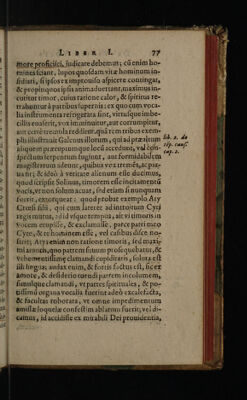 LIBER I. 77
more proficisci, iudicare debemus: cũ enim ho-
mines sciant, lupos quosdam vitæ hominum in-
sidiari, si ipsos ex improuiso aspicere contingat,
& propinquos ipsis animaduertant, maximus in-
cutitur timor, cuius ratione calor, & spiritus re-
trahuntur à partibus superis: ex quo cum voca-
lia instrumenta refrigerata sint, virtusque imbe-
cillis euaserit, vox imminuitur, aut corrumpitur,
aut certè tremula redditur. quā rem tribus exem-
plis illustrauit Galenus illorum, qui ad præaltum
aliquem
locũ accedunt, vel
serpentem fugiunt, aut formidabilem
magistratum adeunt, quibus vox tremens,
tur: & ideò à veritate alienum esse ducimus,
quod scripsit Solinus, timorem esse incitamentũ
vocis, vt non solum acuat, sed etiam si nunquam
fuerit, extorqueat: quod probat exemplo Aty
Crœsi filii, qui cum iaceret ad introitum Cyri
regis mutus, ad id vsque tempus, ait vi timoris in
vocem erupisse, & exclamasse, parce patri meo
Cyre, & te hominem esse, vel casibus disce no-
stris. Aty enim non ratione timoris, sed maxi-
mi amoris, quo patrem suum prosequebatur, &
vehementissimę clamandi cupiditatis, soluta est
illi lingua, audax enim, & fortis factus est, sic ex
amore, & desiderio tuendi patrem incolumem,
simulque clamandi, vt partes spiritales, & po-
tissimũm organa vocalia fuerint adeò excalefacta,
& facultas roborata, vt omne impedimentum
amissæ loquelæ confestim ablatum fuerit; vel di-
camus, id accidisse ex mirabili Dei prouidentia,
lib. 2. de
cap. 2.